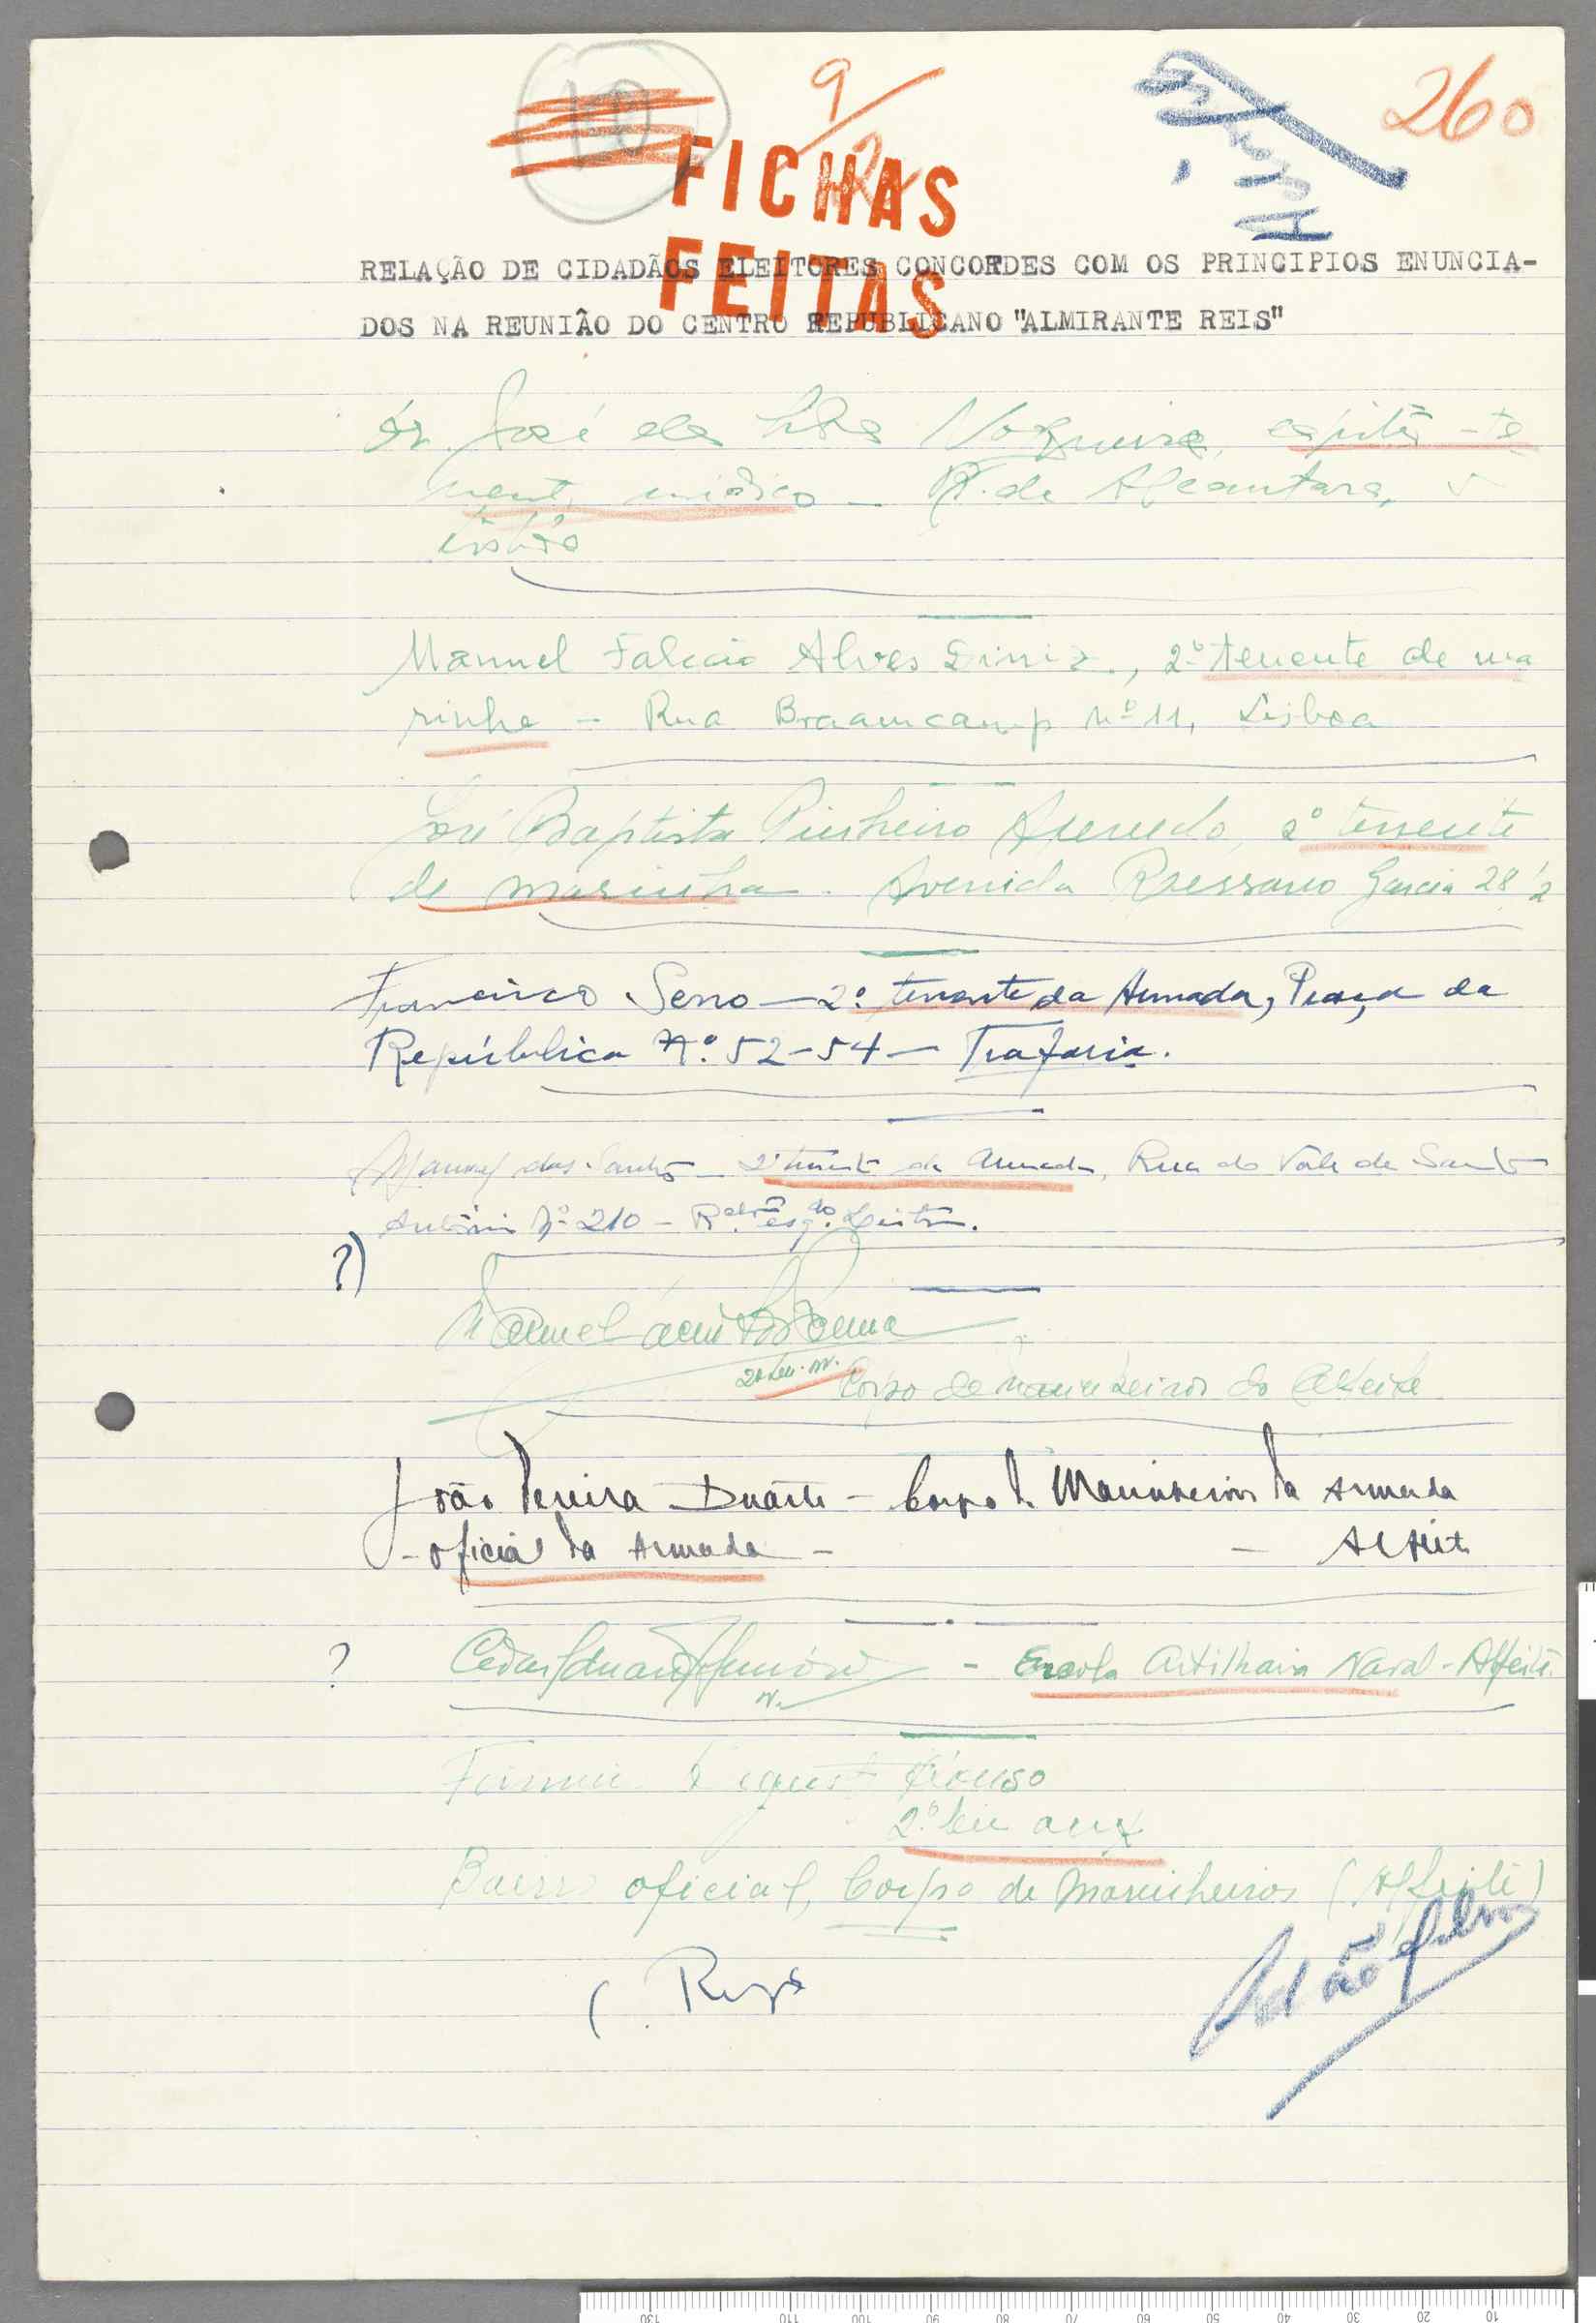 10
9
260
FICHAS
FEITAS
RELAÇÃO DE CIDADÃOS ELEITORES CONCORDES COM OS PRINCIPIOS ENUNCIA-
DOS NA REUNIÃO DO CENTRO REPUBLICANO "ALMIRANTE REIS"
Dr. José da Nogueira, capitão-te
nente médico – R. de Alcantara, 5
Lisboa
Manuel Falcão Alves Diniz, 2º tenente de ma
rinha – Rua Braamcamp nº 11, Lisboa
José Baptista Pinheiro Azevedo, 2º tenente
de marinha. Avenida Ressano Garcia 28
Francisco Serro – 2º tenente da Armada, Praça da
República Nº 52-54 – Trafaria.
Manuel dos Santos – 2º tenente da Armada, Rua do Vale de Santo
António Nº 210 – R. esq.do
?)
Manuel
2º ten. m. Corpo de marinheiros do Alfeite
João Pereira Duarte – Corpo de Marinheiros da Armada
- oficial da Armada – – Alfeite
? – Escola Artilharia Naval - Alfeite
Firmino Afonso
2º ten aux
Bairro oficial, Corpo de Marinheiros (Alfeite)
Adão Silva